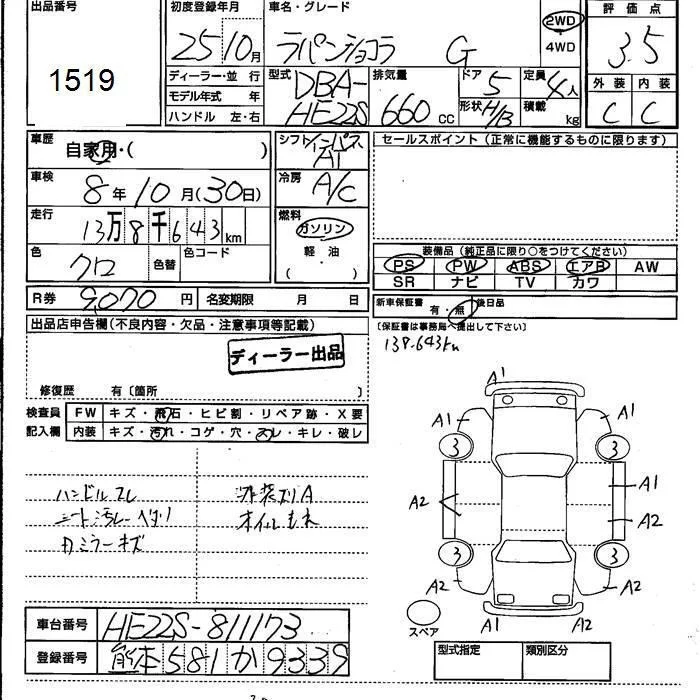 出品番号 初度登録年月 車名・グレード 評価点
1519 25 10月 ラパンショコラ G 2WD 4WD 3.5
ディーラー・並行 型式 DBA-HE22S 排気量 660cc ドア 5 定員 4人
モデル年式 年 形状 H/B 積載 kg 外装 内装
ハンドル 左・右 C C
車歴 自家用・( ) シフト AT セールスポイント (正常に機能するものに限ります)
車検 8年10月(30日) 冷房 A/C
走行 13万8千643km 燃料 ガソリン
軽油
( ・ )
色 クロ 色替 色コード 装備品(純正品に限り○をつけてください)
PS PW ABS エアB AW
SR ナビ TV カワ
R券 9,070円 名変期限 月 日 新車保証書 有・無 後日品
出品店申告欄(不良内容・欠品・注意事項等記載) 〔保証書は事務局へ提出して下さい〕
ディーラー出品 138.643km
修復歴 有〔箇所 〕
検査員記入欄 FW キズ・飛石・ヒビ割・リペア跡・X要
内装 キズ・汚れ・コゲ・穴・スレ・キレ・破レ
ハンドルスレ 外装ズリA
シート汚レ オイルもれ
ミラーキズ
A1
A1 A1
3 3
A1
A2 A2
3 3
A2 A2
A1 A1
スペア
車台番号 HE22S-811173
登録番号 熊本581か9339
型式指定 類別区分